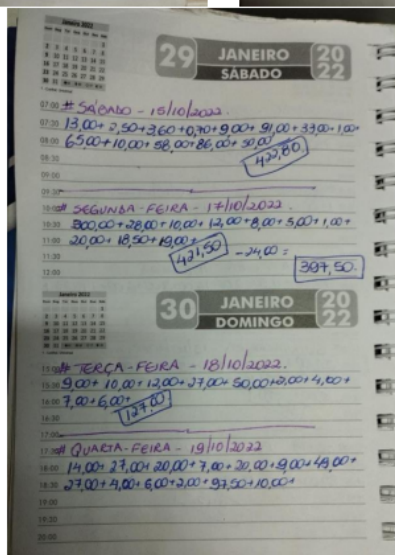 Janeiro 2022
29 JANEIRO 20
SÁBADO 22
07:00 # SÁBADO - 15/10/2022.
07:30 13,00+ 2,50+3,60+0,70+9,00+ 91,00+33,00+1,00+
08:00 65,00+10,00+58,00+86,00+50,00
422,80
08:30
09:00
09:30
10:00 # SEGUNDA-FEIRA - 17/10/2022.
10:30 300,00+28,00+10,00+12,00+8,00+5,00+1,00+
11:00 20,00+18,50+19,00+
11:30 421,50 -24,00 =
397,50.
12:00
Janeiro 2022
30 JANEIRO 20
DOMINGO 22
15:00 # TERÇA-FEIRA - 18/10/2022.
15:30 9,00+ 10,00+12,00+27,00+50,00+2,00+4,00+
16:00 7,00+6,00+
16:30 127,00
17:00
17:30 # QUARTA-FEIRA - 19/10/2022
18:00 14,00+27,00+20,00+7,00+20,00+9,00+49,00+
18:30 27,00+4,00+6,00+2,00+97,50+10,00+
19:00
19:30
20:00